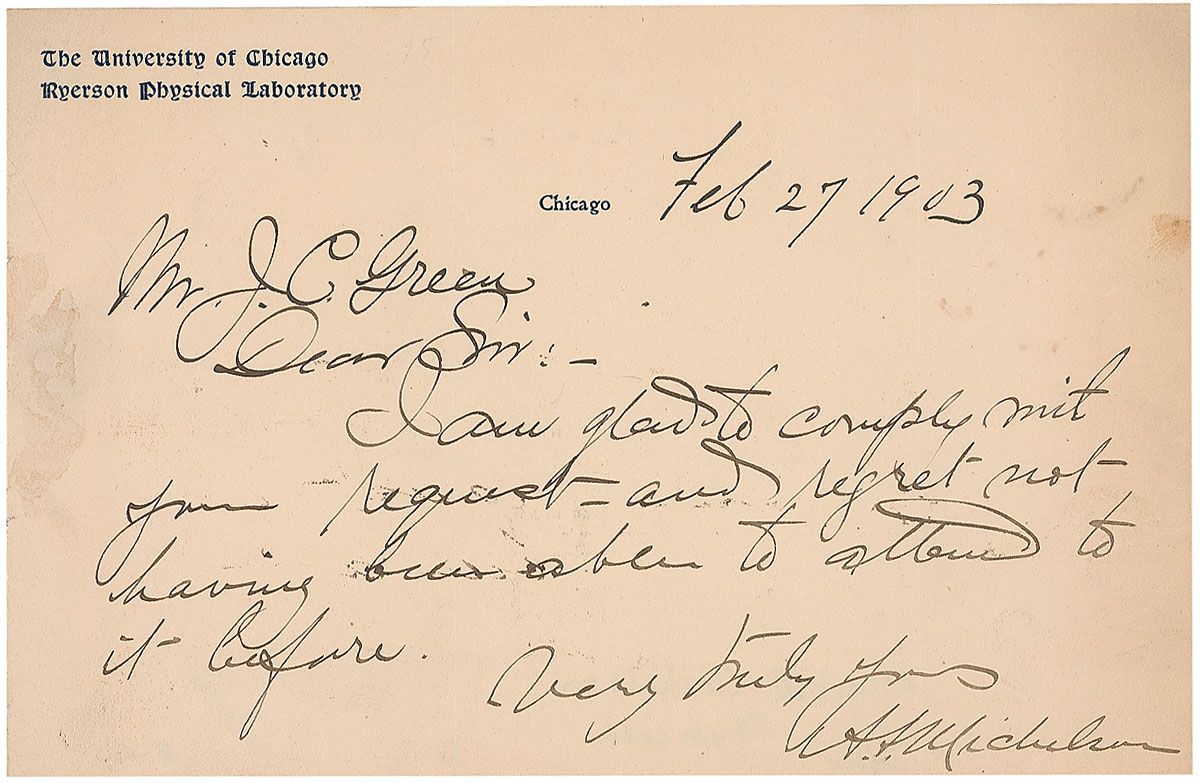 The University of Chicago
Ryerson Physical Laboratory
Chicago Feb 27 1903
Mr. J. C. Green
Dear Sir:-
I am glad to comply with
your request - and regret not
having been able to attend to
it before.
Very truly yours
A. A. Michelson